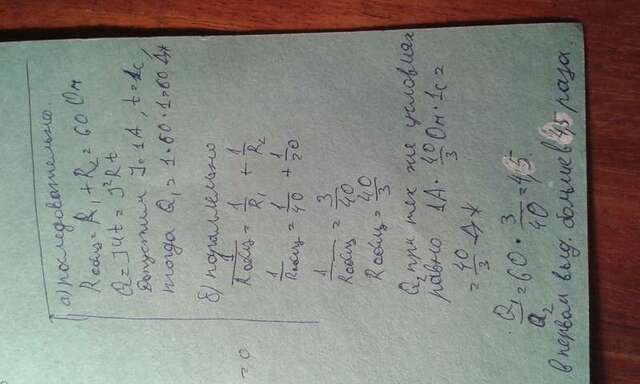 а) последовательно.
Rобщ = R₁ + R₂ = 60 Ом
Q = JUt = J²Rt
Допустим J = 1A, t = 1c,
тогда Q₁ = 1·60·1 = 60 Дж
б) параллельно
1/Rобщ = 1/R₁ + 1/R₂
1/Rобщ = 1/40 + 1/20
1/Rобщ = 3/40
Rобщ = 40/3
Q₂ при тех же условиях
равно 1A · 40/3 Ом · 1c =
= 40/3 Дж
Q₁/Q₂ = 60 · 3/40 = 4,5
в первом выд больше в 4,5 раза.
= 0